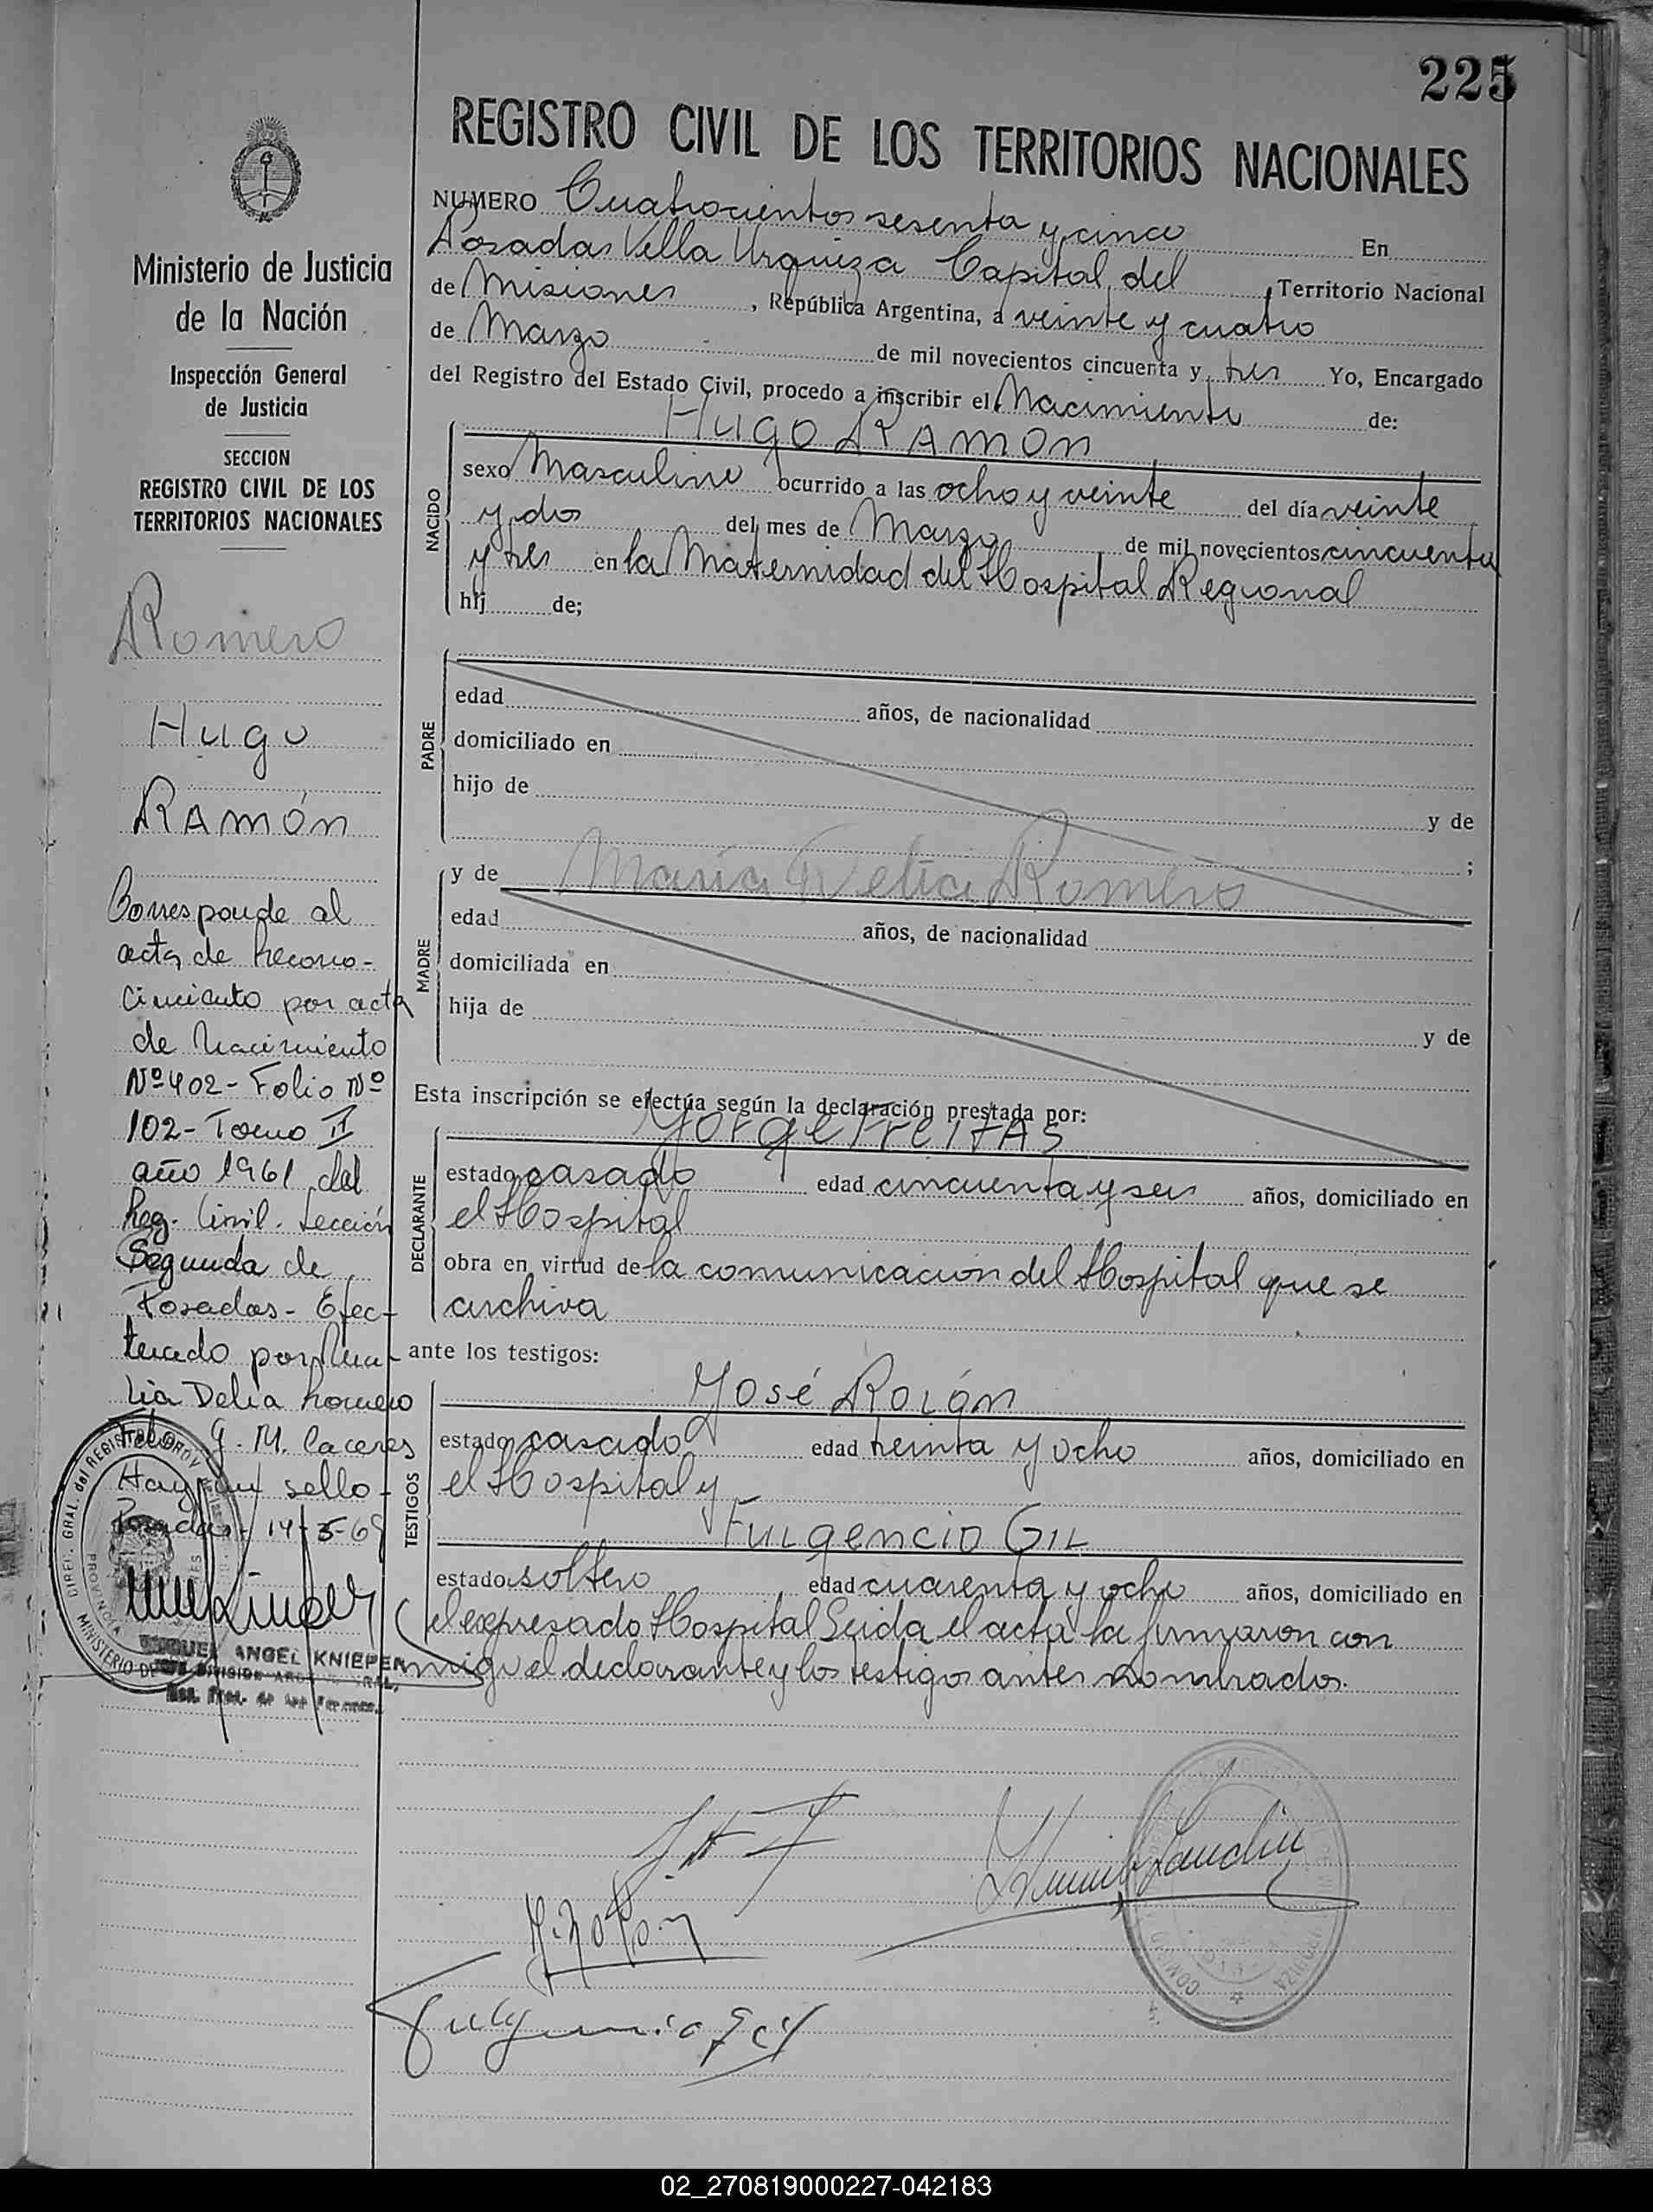 225
REGISTRO CIVIL DE LOS TERRITORIOS NACIONALES
Ministerio de Justicia
de la Nación
Inspección General
de Justicia
SECCION
REGISTRO CIVIL DE LOS
TERRITORIOS NACIONALES
Romero
Hugo
RAMÓN
Corresponde al
acta de recono-
cimiento por acta
de Nacimiento
Nº 402 - Folio Nº
102 - Tomo II
año 1961 del
Reg. Civil. Sección
Segunda de
Posadas - Efec-
tuado por
Delia Romero
G. M. Caceres
Hay un sello -
Posadas - 14-5-69
ANGEL KNIEPER
NUMERO Cuatrocientos sesenta y cinco En
Posadas Villa Urquiza Capital del Territorio Nacional
de Misiones, República Argentina, a veinte y cuatro
de Marzo de mil novecientos cincuenta y tres Yo, Encargado
del Registro del Estado Civil, procedo a inscribir el Nacimiento de:
HUGO RAMON
NACIDO
sexo Masculino ocurrido a las ocho y veinte del día veinte
y dos del mes de Marzo de mil novecientos cincuenta
y tres en la Maternidad del Hospital Regional
hij de;
PADRE
edad años, de nacionalidad
domiciliado en
hijo de y de
;
MADRE
y de María Delia Romero
edad años, de nacionalidad
domiciliada en
hija de y de
Esta inscripción se efectúa según la declaración prestada por:
DECLARANTE
Jorge Freitas
estado casado edad cincuenta y seis años, domiciliado en
el Hospital
obra en virtud de la comunicación del Hospital que se
archiva
ante los testigos:
TESTIGOS
José Rolón
estado casado edad treinta y ocho años, domiciliado en
el Hospital y
Fulgencio GIL
estado soltero edad cuarenta y ocho años, domiciliado en
el expresado Hospital Leida el acta la firmaron con
migo el declarante y los testigos antes nombrados.
Fulgencio Gil
02_270819000227-042183